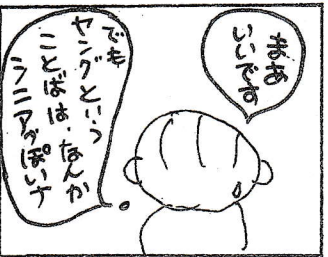 まあ
いいです
でも
ヤングという
ことばは、なんか
シニアっぽいナ